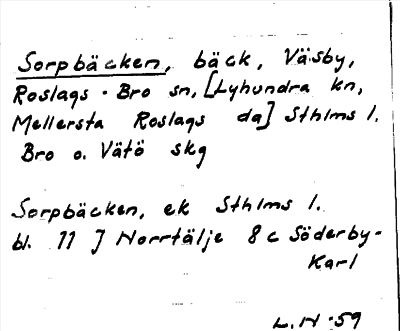 Sorpbäcken, bäck, Väsby,
Roslags-Bro sn, [Lyhundra kn,
Mellersta Roslags da] Sthlms l.
Bro o. Vätö skg
Sorpbäcken, ek Sthlms l.
bl. 11 J Norrtälje 8 c Söderby-
Karl
L.H -59